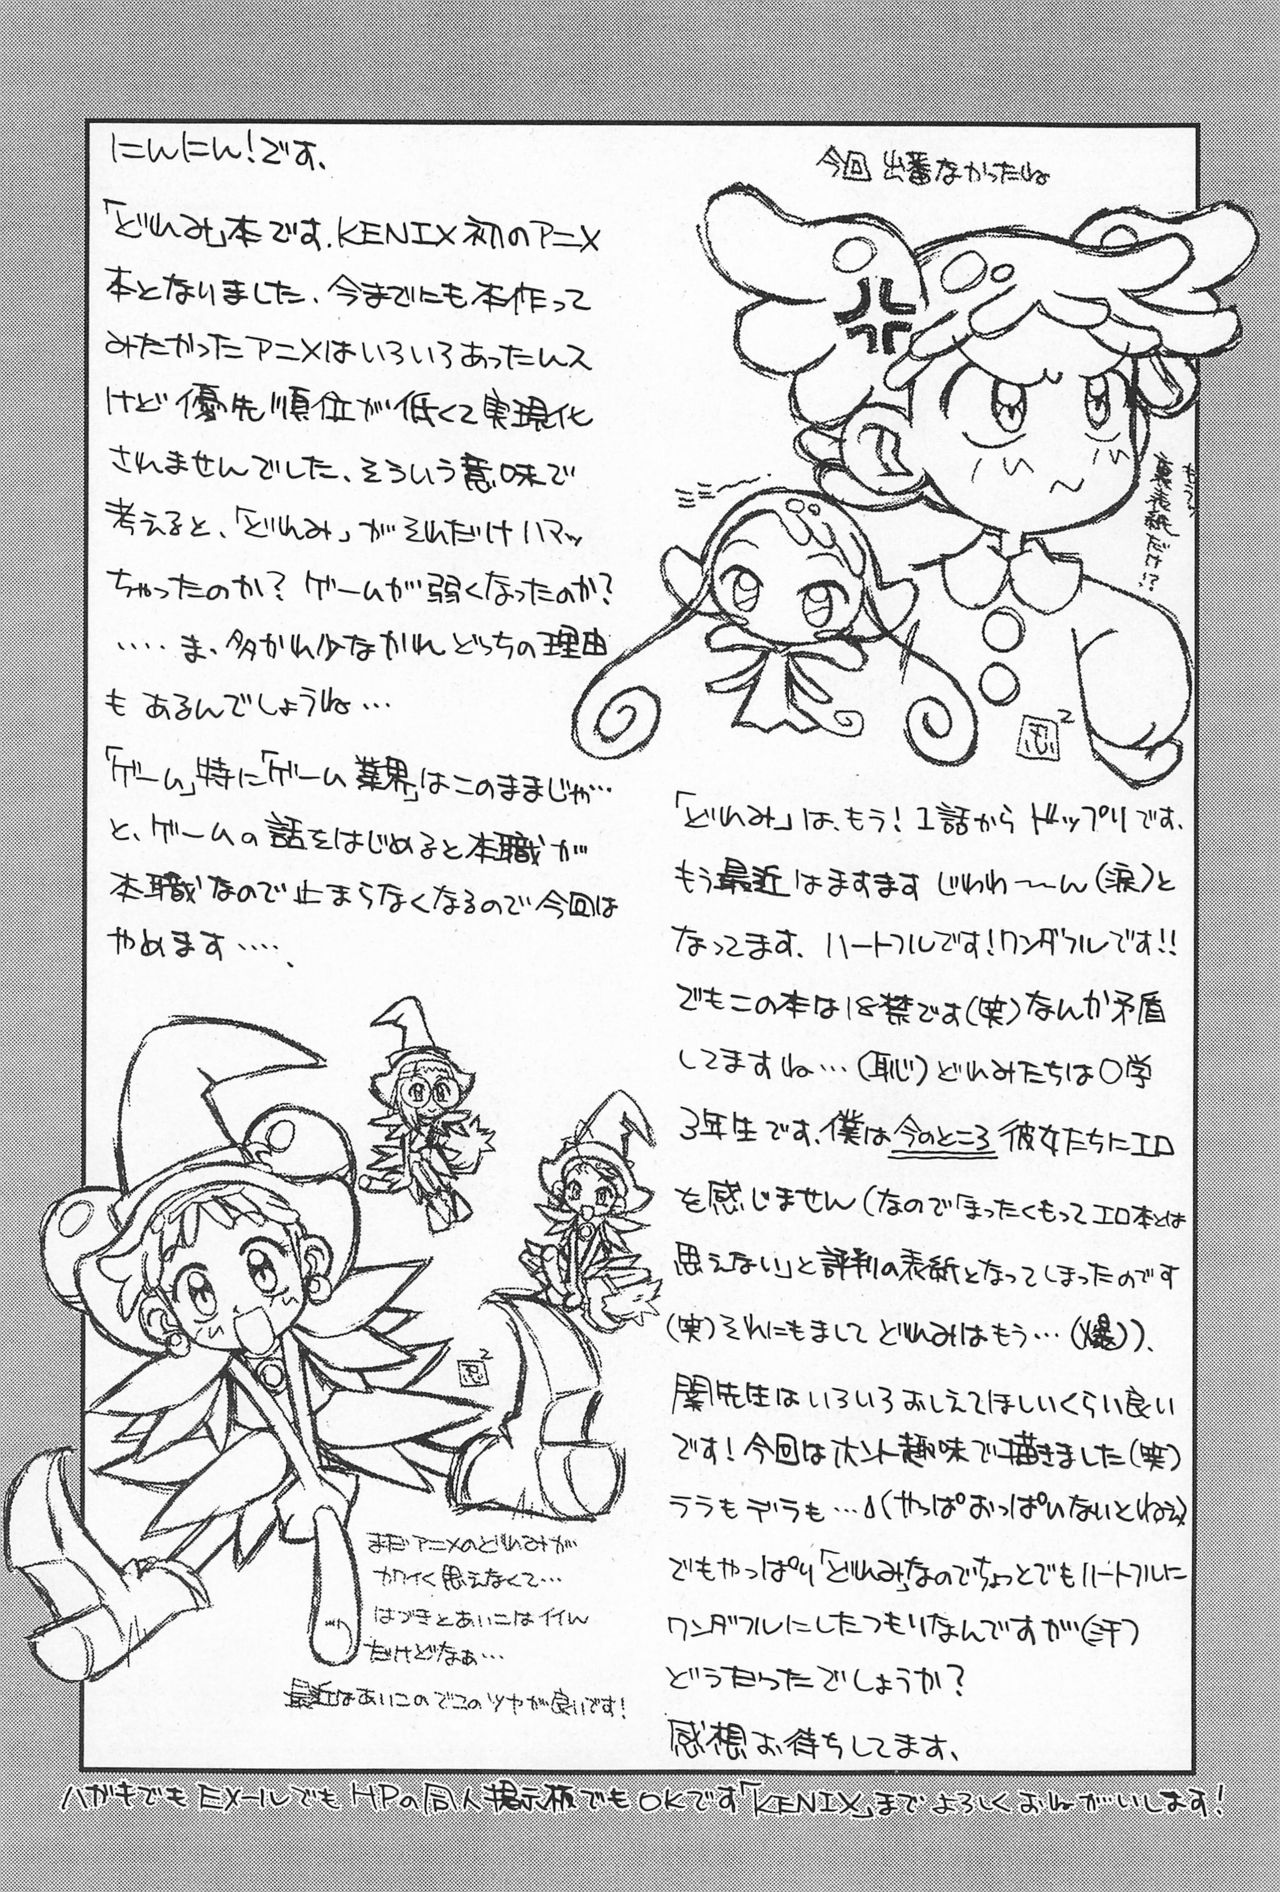 にんにん!です、
「どれみ」本です、KENIX初のアニメ
本となりました、今までにも本作って
みたかったアニメはいろいろあったんス
けど優先順位が低くて実現化
されませんでした、そういう意味で
考えると、「どれみ」がそれだけハマッ
ちゃったのか?ゲームが弱くなったのか?
‥‥ま、多かれ少なかれどっちの理由
もあるんでしょうね…
「ゲーム」特に「ゲーム業界」はこのままじゃ…
と、ゲームの話をはじめると本職が
本職なので止まらなくなるので今回は
やめます‥‥、
今回出番なかったね
もう!
裏表紙だけ!?
忍2
「どれみ」は、もう!1話からドップリです、
もう最近はますますじわわ〜〜ん(涙)と
なってます、ハートフルです!ワンダフルです!!
でもこの本は18禁です(笑)なんか矛盾
してますね…(恥)どれみたちは○学
3年生です、僕は今のところ彼女たちにエロ
を感じません(なので「まったくもってエロ本とは
思えない」と評判の表紙となってしまったのです
(笑)それにもましてどれみはもう…(爆))、
関先生はいろいろおしえてほしいくらい良い
です!今回はホント趣味で描きました(笑)
ララもデラも…♪(やっぱおっぱいないとねぇ)
でもやっぱり「どれみ」なのでちょっとでもハートフルに
ワンダフルにしたつもりなんですが(汗)
どうだったでしょうか?
感想お待ちしてます、
忍2
まだアニメのどれみが
カワイく思えなくて…
はづきとあいこはイイん
だけどなぁ…
最近はあいこのでこのツヤが良いです!
ハガキでもEメールでもHPの同人掲示板でもOKです「KENIX」までよろしくおねがいします!